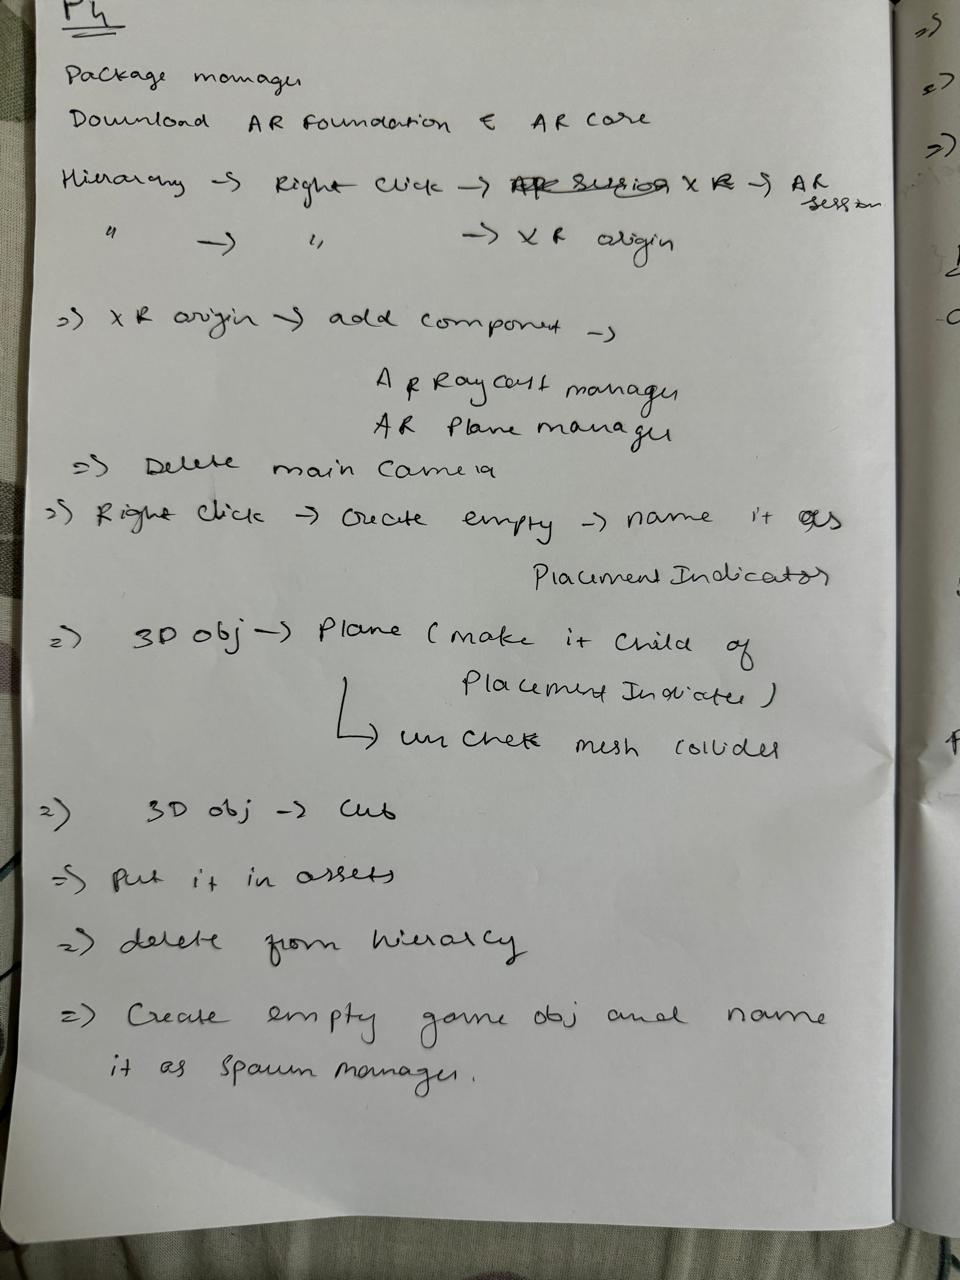 Package manager
Download AR Foundation & AR core
Hierarchy → Right Click → XR → AR session
" → " → XR origin
=> XR origin → add component →
AR Raycast manager
AR Plane manager
=> Delete main camera
=> Right Click → Create empty → name it as
Placement Indicator
=> 3D obj → Plane (make it child of
Placement Indicator)
↳ un chek mesh collider
=> 3D obj → cub
=> Put it in assets
=> delete from hierarcy
=> Create empty game obj and name
it as spawn manager.